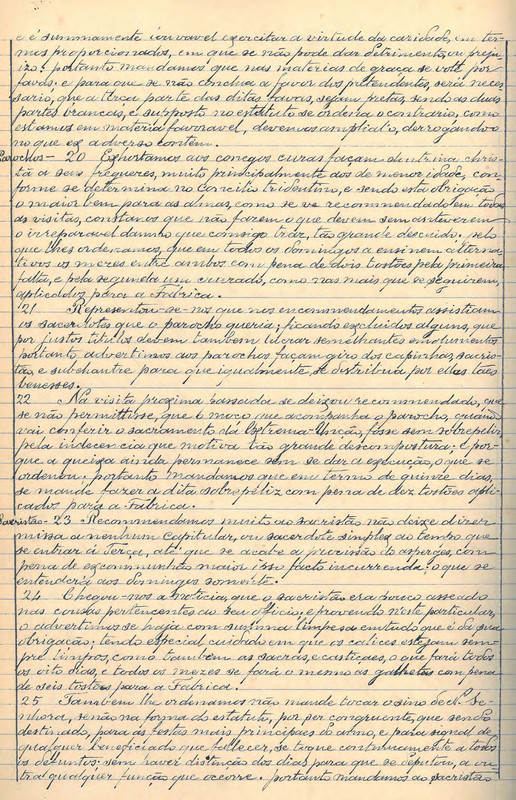 e é summamente louvavel exercitar a virtude da caridade, em ter-
mos proporcionados, em que se não pode dar detrimento, ou preju-
izo: portanto mandamos que nas materias de graça se vote por
favas: e para que se não conclua a favor dos pretendentes, será neces-
sario, que a terça parte das ditas favas, sejam pretas, sendo as duas
partes brancas, e supposto no estatuto se ordena o contrario, como
estamos em materia favoravel, devemos amplial-o, derrogando-o
no que ex adverso contém.
Parochos - 20 Exhortamos aos conegos curas façam doutrina chris-
tã a seus freguezes, muito principalmente aos de menor idade, con-
forme se determina no Concilio tridentino, e sendo esta obrigação
o maior bem para as almas, como se ve recommendado em todas
as visitas, constanos que não fazem o que devem sem anteverem
o irreparavel damno que comsigo traz, tão grande descuido. pelo
que lhes ordenamos, que em todos os domingos a ensinem alterna-
tivos os mezes entre ambos com pena de dois tostões pela primeira
falta, e pela segunda um cruzado, como nas mais que se seguirem,
aplicados para a Fabrica.
21 Representou-se-nos que nos encommendamentos assistiam
os sacerdotes que o parocho queria; ficando excluidos alguns, que
por justos titulos devem tambem lucrar semelhantes emolumentos
portanto advertimos aos parochos façam giro dos capinhas, sacris-
tão, e subchantre para que igualmente se distribua por elles taes
benesses.
22 Na visita proxima passada se deixou recommendado, que
se não permittisse, que o moço que acompanha o parocho, quando
vai conferir o sacramento da Extrema-Unção, fosse sem sobrepeliz,
pela indecencia que motiva tão grande descompostura: E por-
que a queixa ainda permanece sem se dar a execução, o que se
ordenou: portanto mandamos que em termo de quinze dias,
se mande fazer a dita sobrepeliz com pena de dez tostões apli-
cados para a Fabrica.
Sacristão - 23 Recommendamos muito ao sacristão não deixe dizer
missa a nenhum Capitular, ou sacerdote simplex ao tempo que
se entrar á Terça, até que se acabe a procissão do asperges, com
pena de excommunhão maior ipso facto incurrenda: o que se
entenderá aos domingos somente.
24 Chegou-nos a noticia, que o sacristão era pouco asseado
nas cousas pertencentes ao seu officio; e provendo n'este particular,
o advertimos se haja com summa limpesa em tudo que é da sua
obrigação; tendo especial cuidado em que os calices estejam sem-
pre limpos, como tambem as sacras, e castiçaes, o que fará todos
os oito dias, e todos os mezes se fará o mesmo as galhetas com pena
de seis tostões para a Fabrica.
25 Tambem lhe ordenamos não mande tocar o sino de N. Se-
nhora, senão na forma do estatuto, por ser congruente, que sendo
destinado, para as festas mais principaes do anno, e para signal de
qualquer beneficiado que fallecer, se toque continuamente a todos
os defuntos: sem haver distinção dos dias para que se deputou, a ou-
tra qualquer função que ocorre. portanto mandamos ao sacristão